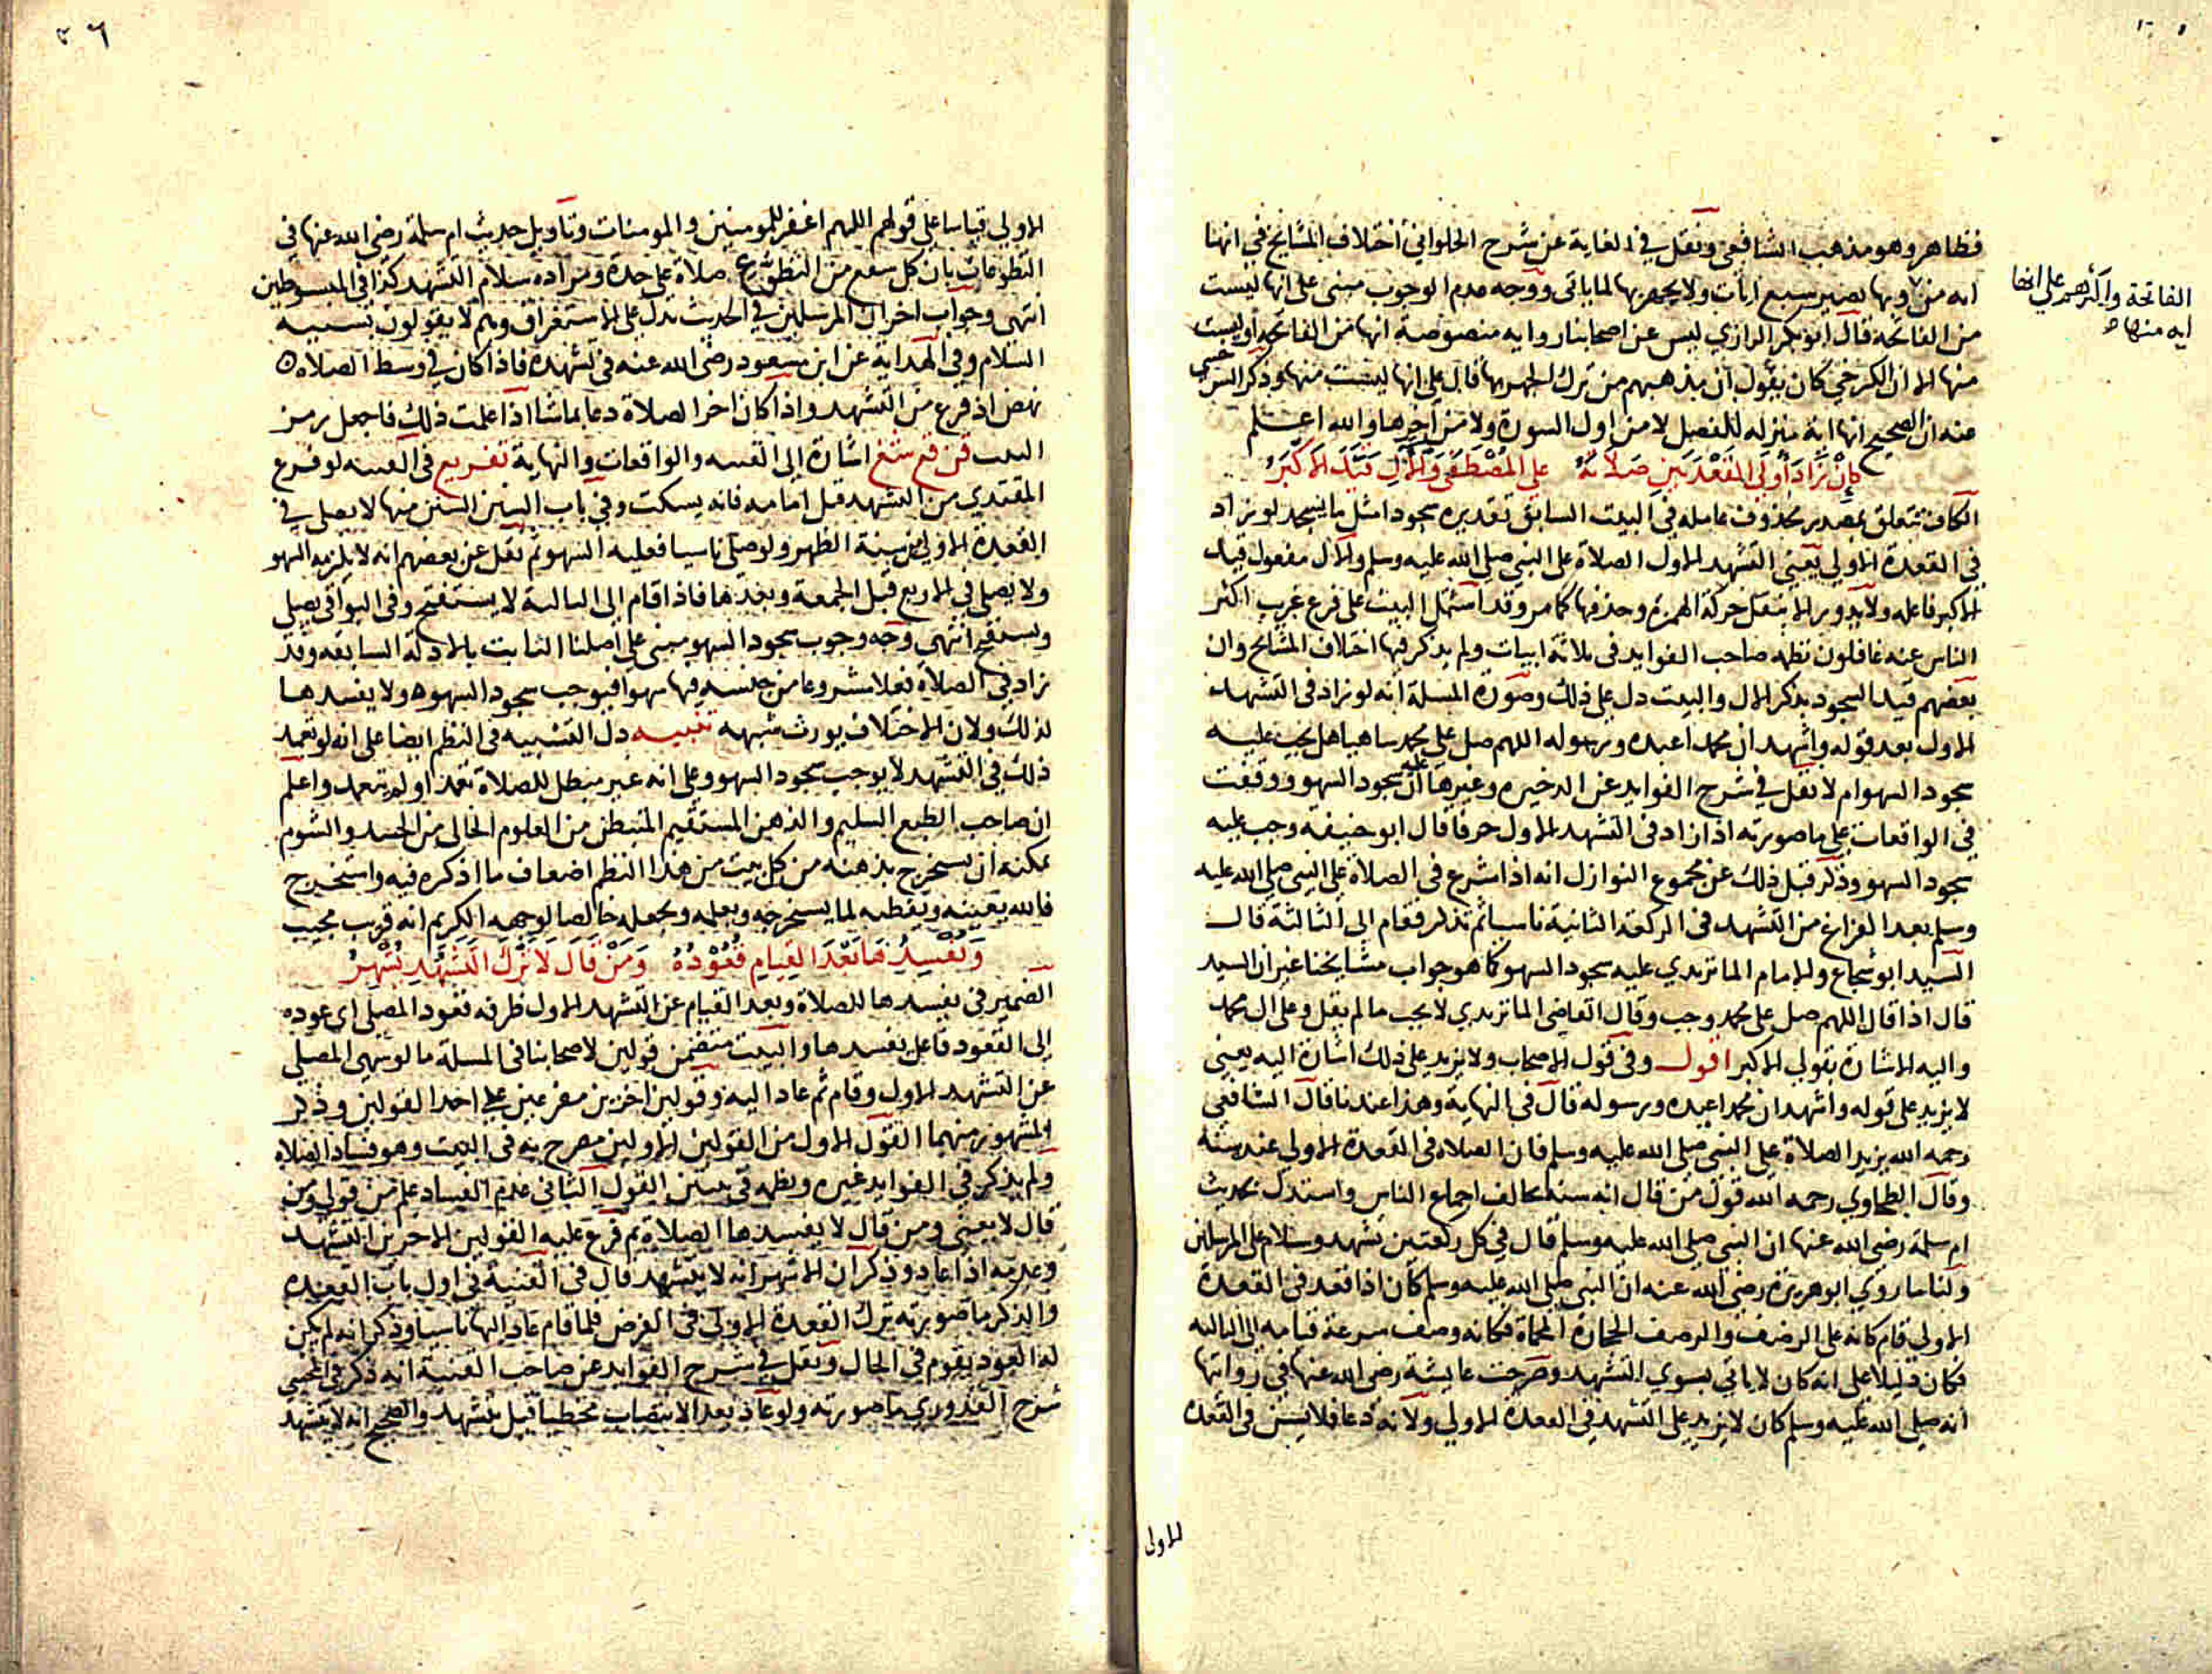 فظاهر وهو مذهب الشافعي ونقل في الغاية عن شرح الحلواني اختلاف المشايخ في انها
الفاتحة واكثرهم على انها
ايه منها ه
ايه من وبها تصير سبع ايات ولا يجهر بها لما ياتي ووجه عدم الوجوب مبني على انها ليست
من الفاتحة قال ابو بكر الرازي ليس عن اصحابنا روايه منصوصة انها من الفاتحة او ليست
منها الا ان الكرخي كان يقول ان مذهبهم من ترك الجهر بها قال على انها ليست منها وذكر السرخسي
عنه ان الصحيح انها اية منزله للفصل لا من اول السورة ولا من اخرها والله اعلم
كإن زاد أولى القعدتين صلاته على المصطفى والآل قيد الاكبر
الكاف تتعلق بمصدر محذوف عامله في البيت السابق تقديره سجودا مثل ما يسجد لو زاد
في القعدة الاولى يعني التشهد الاول الصلاة على النبي صلى الله عليه وسلم والال مفعول قيد
الاكبر فاعله ولابد وبرا لا بنقل حركة الهمزة وحذفها كما مر وقد اشتمل البيت على فرع غريب اكثر
الناس عنه غافلون نظمه صاحب الفوايد في ثلاثة ابيات ولم يذكر فيها اختلاف المشايخ وان
بعضهم قيد السجود بذكر الال والبيت دل على ذلك وصورة المسلة انه لو زاد في التشهد
الاول بعد قوله واشهد ان محمدا عبده ورسوله اللهم صل على محمد ساهيا هل يجب عليه
سجود السهو ام لا نقل في شرح الفوايد عن الذخيره وغيرها ان عليه سجود السهو ووقفت
في الواقعات على ما صورته اذا زاد في التشهد الاول حرفا قال ابو حنيفه وجب عليه
سجود السهو وذكر قبل ذلك عن مجموع النوازل انه اذا شرع في الصلاة على النبي صلى الله عليه
وسلم بعد الفراغ من التشهد في الركعة الثانية ناسيا ثم تذكر فقام الى الثالثة قال
السيد ابو شجاع والامام الماتريدي عليه سجود السهو كما هو جواب مشايخنا غير ان السيد
قال اذا قال اللهم صل على محمد وجب وقال القاضي الماتريدي لا يجب ما لم يقل وعلى ال محمد
واليه الاشارة بقولي الاكبر اقول وفي قول الاصحاب ولا يزيد على ذلك اشارة اليه يعني
لا يزيد على قوله واشهد ان محمدا عبده ورسوله قال في النهاية وهذا عندنا قال الشافعي
رحمه الله يزيد الصلاة على النبي صلى الله عليه وسلم فان الصلاه في القعدة الاولى عنده سنة
وقال الطحاوي رحمه الله قول من قال انه سنة مخالف اجماع الناس واستدل بحديث
ام سلمة رضي الله عنها ان النبي صلى الله عليه وسلم قال في كل ركعتين تشهد وسلام على المرسلين
ولنا ما روي ابو هريرة رضي الله عنه ان النبي صلى الله عليه وسلم كان اذا قعد في القعدة
الاولى قام كانه على الرضف والرضف الحجارة المحماة فكانه وصف سرعة قيامه الى الثالثه
فكان قليلا على انه كان لا ياتي بسوى التشهد وصرحت عايشة رضي الله عنها في روايتها
انه صلى الله عليه وسلم كان لا يزيد على التشهد في القعدة الاولى ولانه دعا فلا يسن في القعدة
الاولى
٢٦
الاولى قياسا على قولهم اللهم اغفر للمومنين والمومنات وتاويل حديث ام سلمة رضي الله عنها في
التطوعات بان كل شفع من التطوع صلاة على حدة ومراده سلام التشهد كذا في المبسوطين
انتهى وجواب اخر ال المرسلين في الحديث تدل على الاستغراق وهم لا يقولون بسنيه
السلام وفي الهداية عن ابن مسعود رضي الله عنه في تشهده فاذا كان في وسط الصلاة
نهض اذ فرغ من التشهد واذا كان اخر الصلاة دعا بما شا اذا علمت ذلك فاجعل رمز
البيت قن قع شغ اشارة الى القنيه والواقعات والنهاية تفريع في القنيه لو فرغ
المقتدي من التشهد قبل امامه فانه يسكت وفي باب السنن السنن منها لا يصلي في
القعدة الاولى من سنة الظهر ولو صلى ناسيا فعليه السهو ثم نقل عن بعضهم انه لا يلزمه السهو
ولا يصلي في الاربع قبل الجمعة وبعدها فاذا قام الى الثالثة لا يستفتح وفي البواقي يصلي
ويستفتح انتهى وجه وجوب سجود السهو مبني على اصلنا الثابت بالادلة السابقه وقد
زاد في الصلاة فعلا مشروعا من جنسه فيها سهوا فيوجب سجود السهو ولا يفسدها
لذلك ولان الاختلاف يورث شبهه تنبيه دل التشبيه في النظم ايضا على انه لو تعمد
ذلك في التشهد لا يوجب سجود السهو وعلى انه غير مبطل للصلاة تعمد او لم يتعمد واعلم
ان صاحب الطبع السليم والذهن المستقيم المتبطن من العلوم الخالي من الحسد والشوم
يمكنه ان يستخرج بذهنه من كل بيت من هذا النظم اضعاف ما اذكره فيه واستخرج
فالله يعينه ويفطنه لما يستخرجه ويعلمه ويجعله خالصا لوجهه الكريم انه قريب مجيب
وتفسدها بعد القيام قعوده ومن قال لا ترك التشهد يشهر
الضمير في يفسدها للصلاة وبعد القيام عن التشهد الاول ظرفه فقعود المصلي اى عوده
الى القعود فاعل يفسدها والبيت متضمن قولين لاصحابنا في المسلة ما لو سهى المصلي
عن التشهد الاول وقام ثم عاد اليه وقولين اخرين مفرعين على احد القولين وذكر
المشهور منهما القول الاول من القولين الاولين مصرح به في البيت وهو فساد الصلاة
ولم يذكر في الفوايد غيره ونظمه في بيتين القول الثاني عدم الفساد علم من قولي ومن
قال لا يعني ومن قال لا يفسدها الصلاة ثم فرع عليه القولين الاخرين التشهد
وعدمه اذا عاد وذكر ان الاشهر انه لا يتشهد قال في القنية في اول باب القعده
والذكر ما صورته ترك القعدة الاولى في الفرض فلما قام عاد اليها ناسيا وذكر انه لم يكن
له العود يقوم في الحال ونقل في شرح الفوايد عن صاحب القنية انه ذكر في المجتبى
شرح القدوري ما صورته ولو عاد بعد الانتصاب مخطيا قيل يتشهد والصحيح انه لا يتشهد